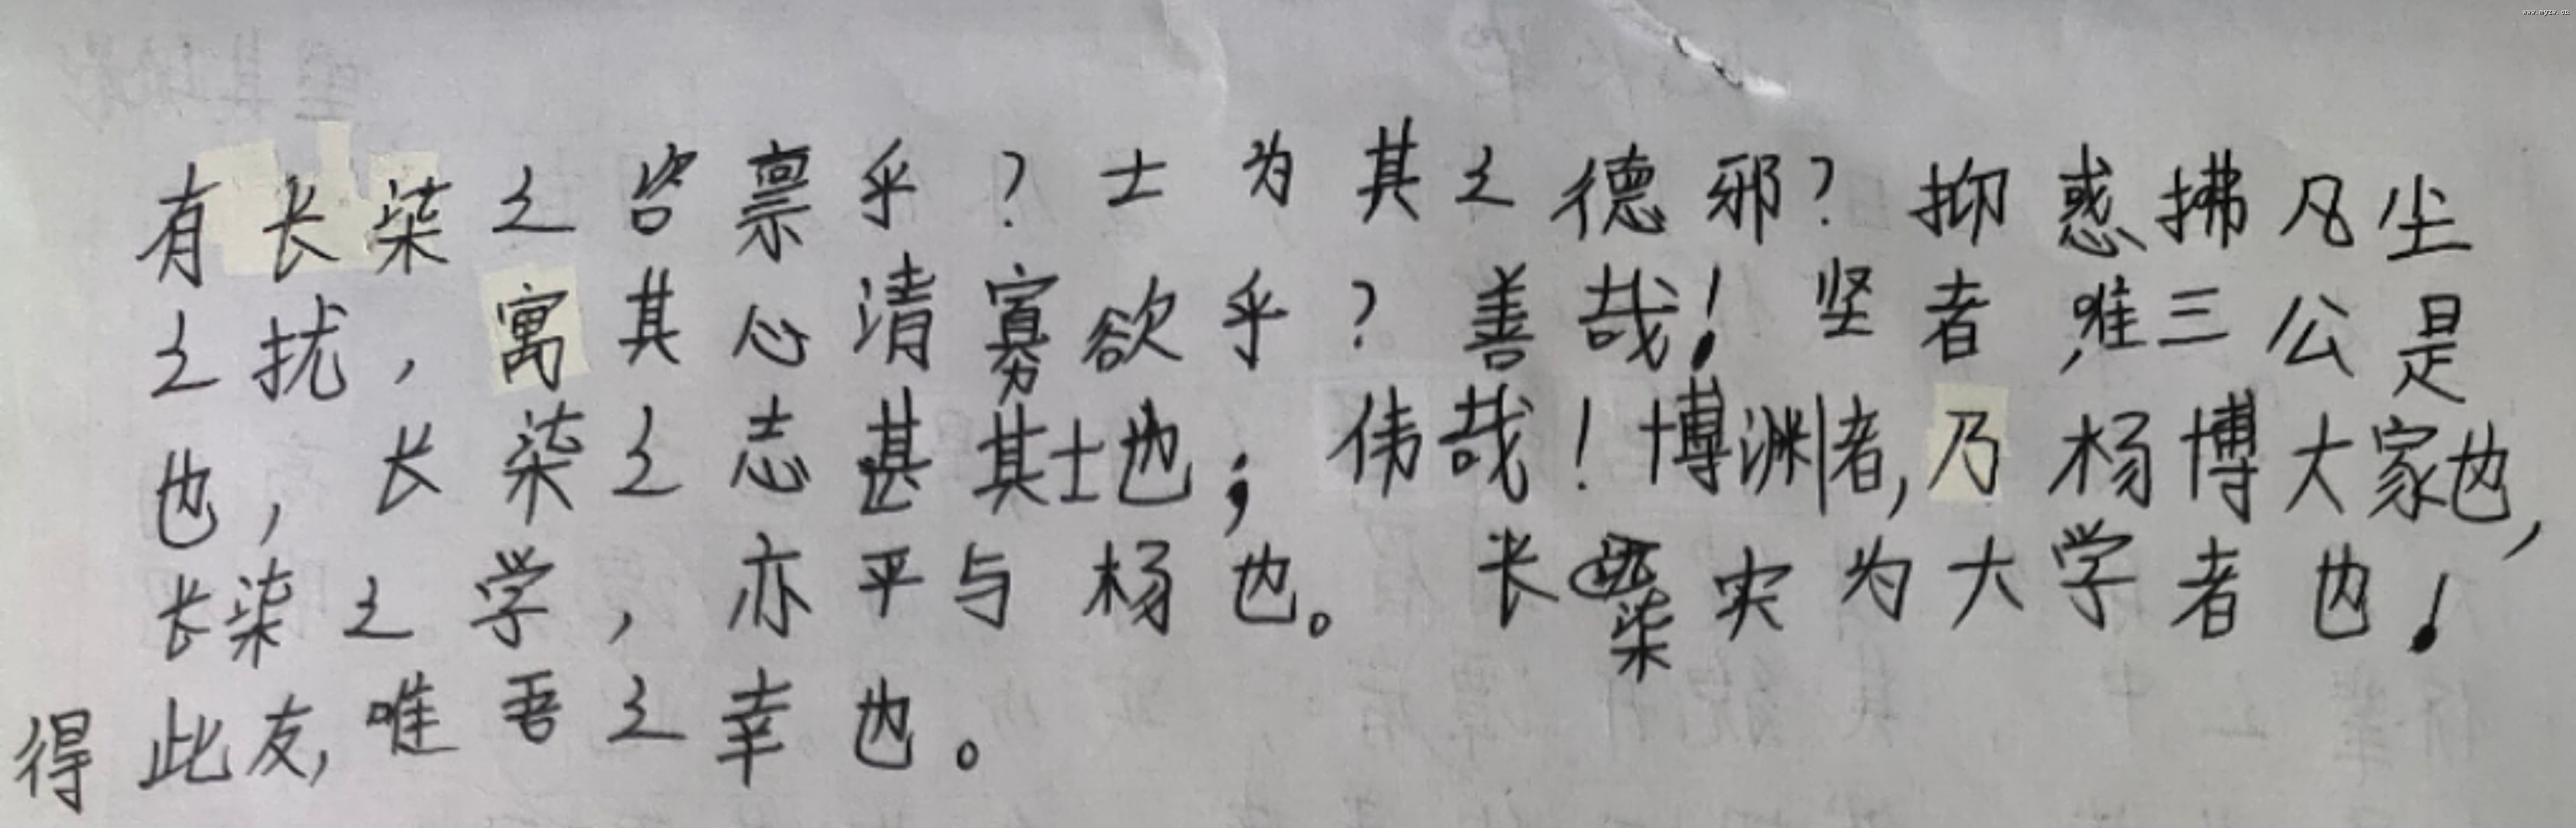 有长柒之咨禀乎？士为其之德邪？抑惑拂凡尘
之扰，寓其心清寡欲乎？善哉！坚者，唯三公是
也，长柒之志甚其士也；伟哉！博渊者，乃杨博大家也，
长柒之学，亦平与杨也。长柒实为大学者也！
得此友，唯吾之幸也。